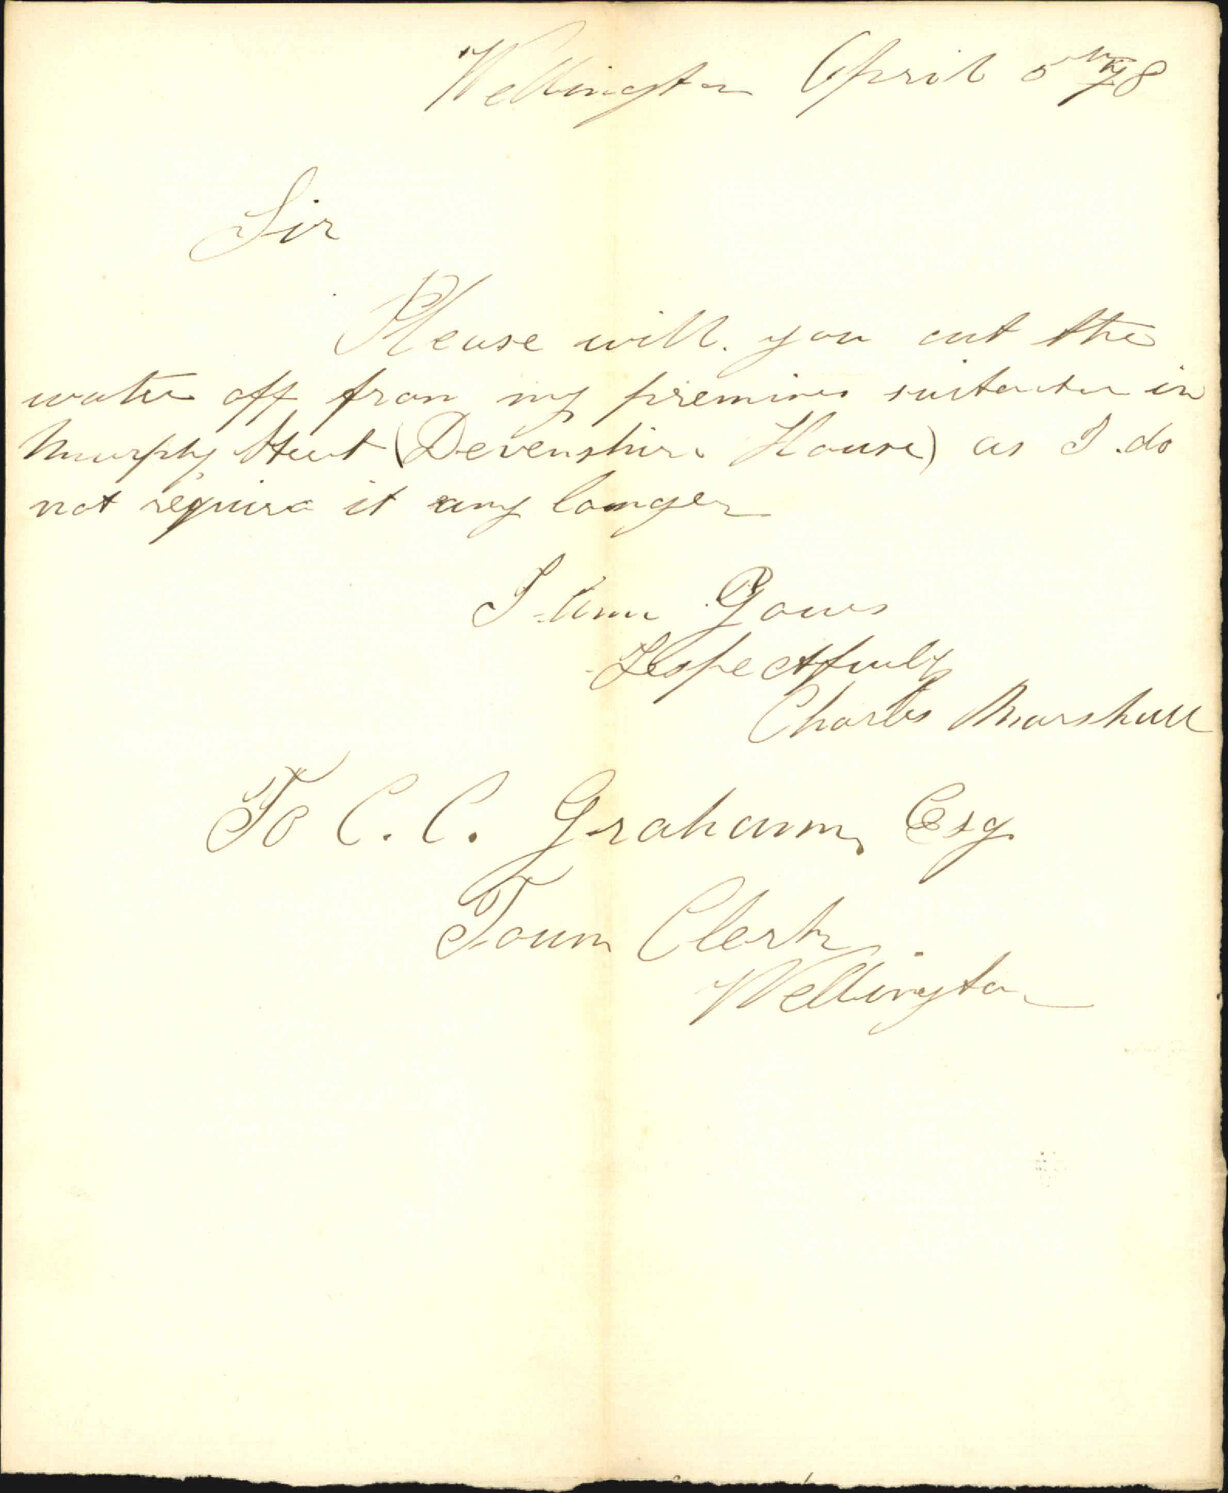 Wellington April 5th 78
Sir
Please will you cut the
water off from my premises suitatu in
Murphy Street (Devenshire House) as I do
not require it any longer
I am Yours
Respectfully
Charles Marshall
To C. C. Graham, Esq.
Town Clerk
Wellington